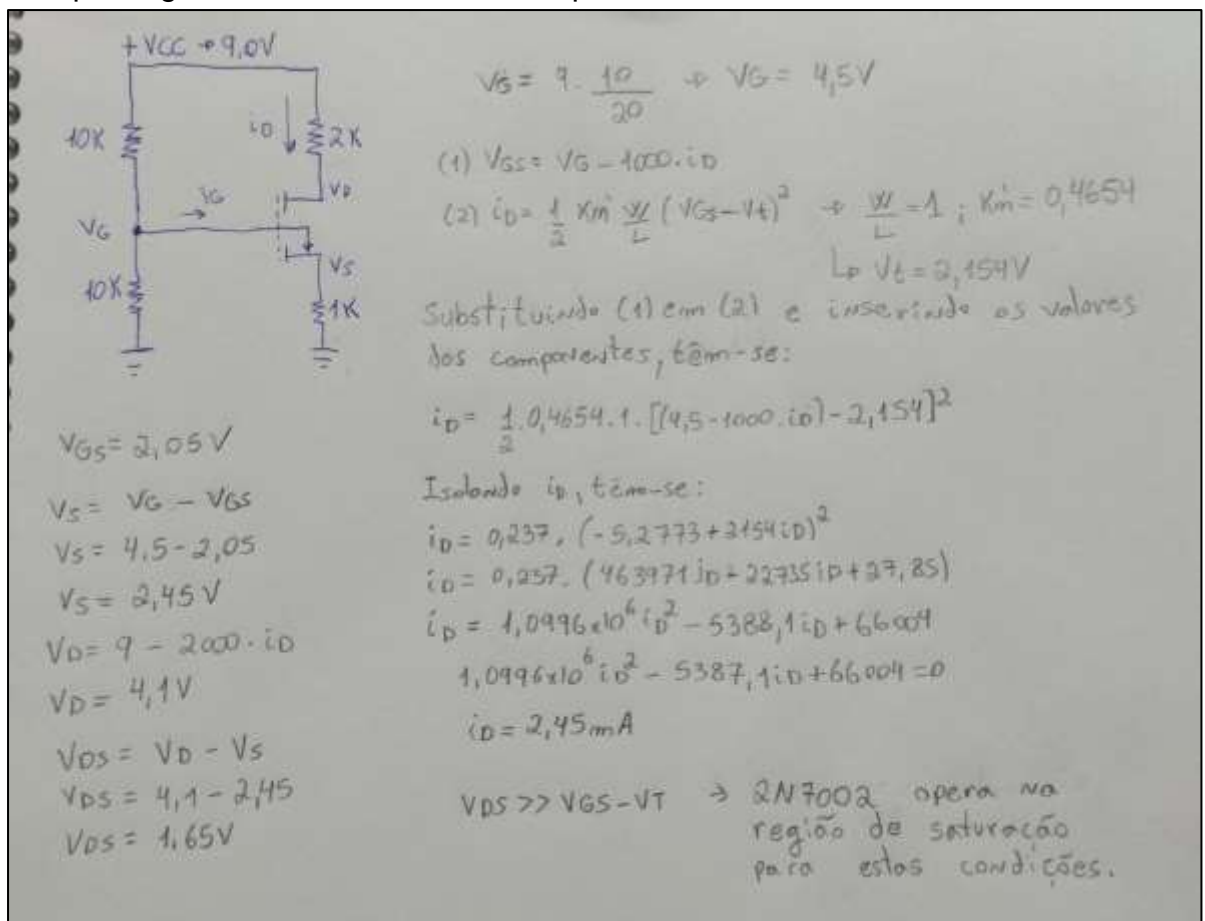 +VCC → 9,0V
10K
iD
2K
VD
IG
VG
VS
10K
1K
VGS = 2,05V
VS = VG - VGS
VS = 4,5 - 2,05
VS = 2,45V
VD = 9 - 2000·iD
VD = 4,1V
VDS = VD - VS
VDS = 4,1 - 2,45
VDS = 1,65V
VG = 9·10/20 → VG = 4,5V
(1) VGS = VG - 1000·iD
(2) iD = 1/2 Kn' W/L (VGS - Vt)² → W/L = 1 ; Kn' = 0,4654
↳ Vt = 2,154V
Substituindo (1) em (2) e inserindo os valores
dos componentes, têm-se:
iD = 1/2·0,4654·1·[(4,5 - 1000·iD) - 2,154]²
Isolando iD, têm-se:
iD = 0,237·(-5,2773 + 2154iD)²
iD = 0,237·(463971iD - 22735iD + 27,85)
iD = 1,0996x10⁶iD² - 5388,1iD + 66004
1,0996x10⁶iD² - 5387,1iD + 66004 = 0
iD = 2,45mA
VDS >> VGS - VT → 2N7002 opera na
região de saturação
para estas condições.